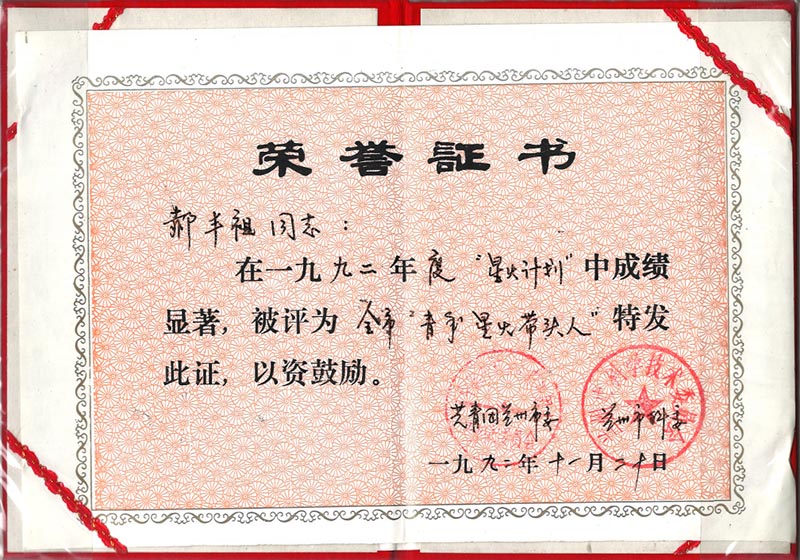 荣誉証书
郝丰祖同志：
在一九九二年度“星火计划”中成绩
显著，被评为全市“青年星火带头人”特发
此证，以资鼓励。
共青团兰州市委 兰州市科委
一九九二年十一月二十日